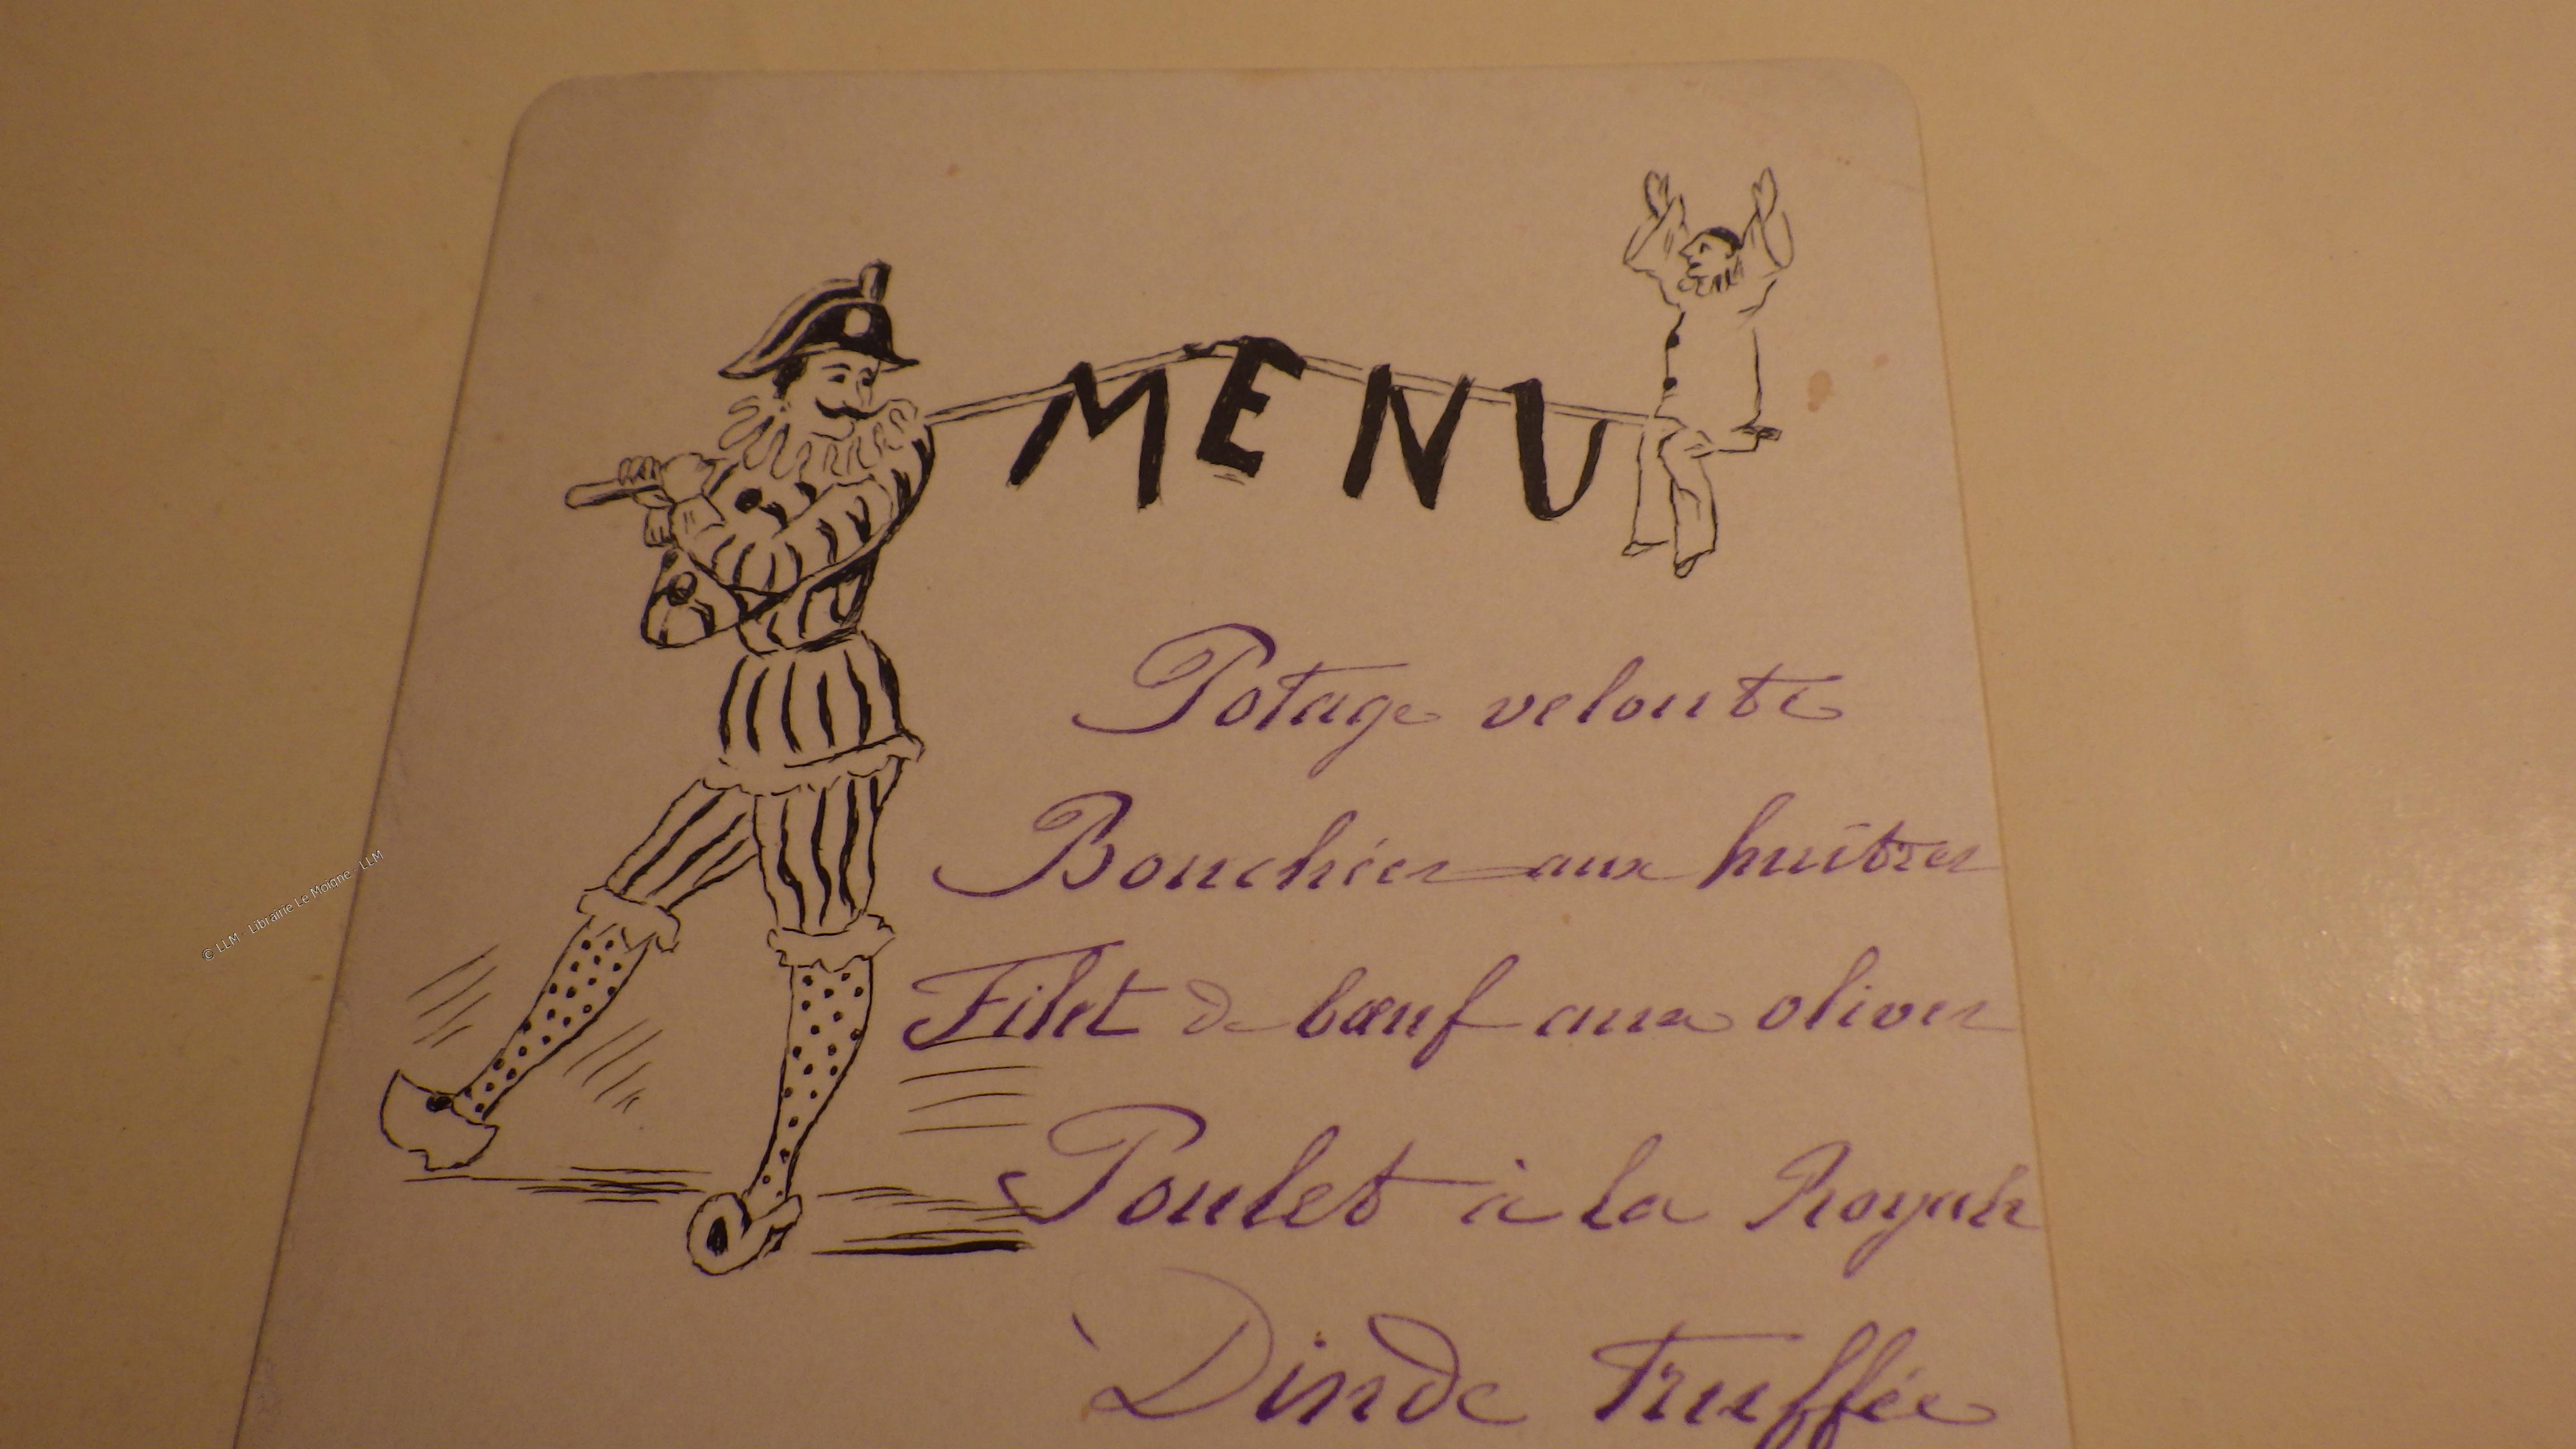 MENU
Potage velouté
Bouchées aux huîtres
Filet de bœuf aux olives
Poulet à la Royale
Dinde truffée
© LLM - Librairie Le Moigne - LLM